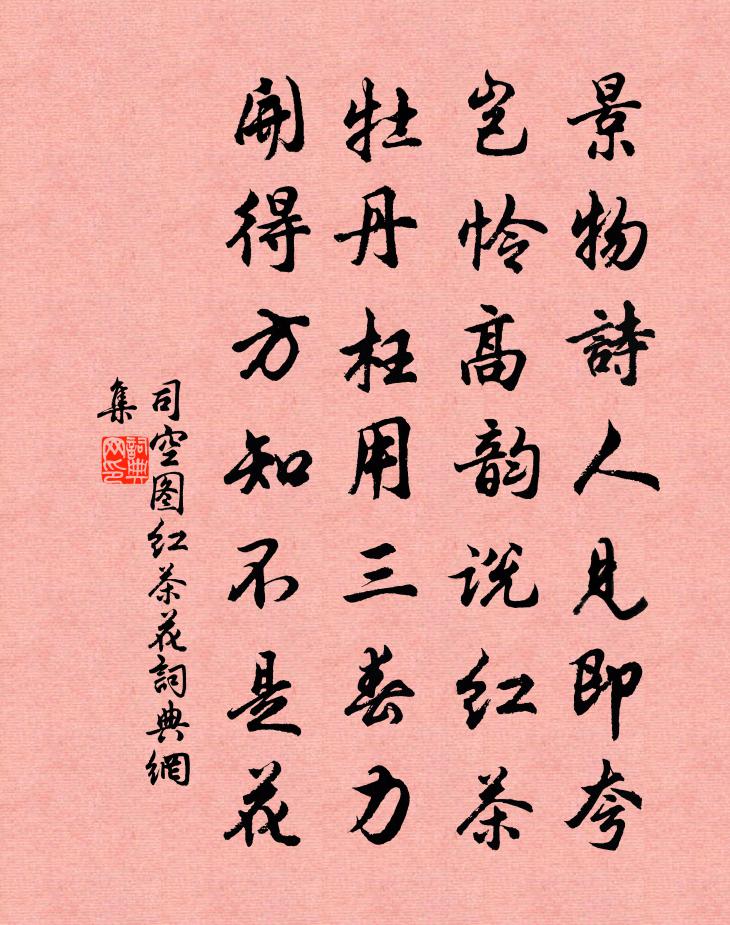 景物詩人見即夸
岂怜高韵説红茶
牡丹枉用三春力
開得方知不是花
司空图红茶花詞典網
集
詞典網印